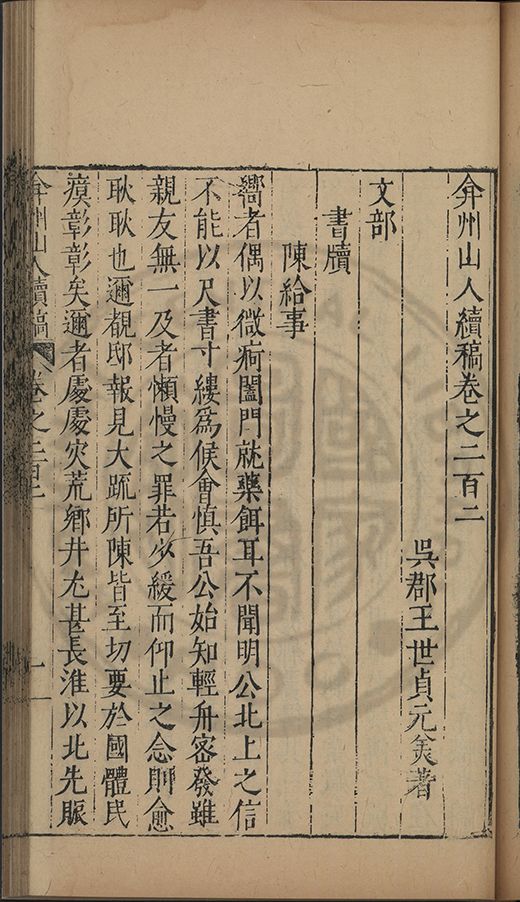 弇州山人續稿卷之二百二
吳郡王世貞元美著
文部
書牘
陳給事
嚮者偶以微痾闔門就藥餌耳不聞明公北上之信
不能以尺書寸縷爲候會慎吾公始知輕舟密發雖
親友無一及者懶慢之罪若少緩而仰止之念則愈
耿耿也邇覩邸報見大疏所陳皆至切要於國體民
瘼彰彰矣邇者處處災荒鄉井尤甚長淮以北先賑
弇州山人續稿 卷之二百二 一